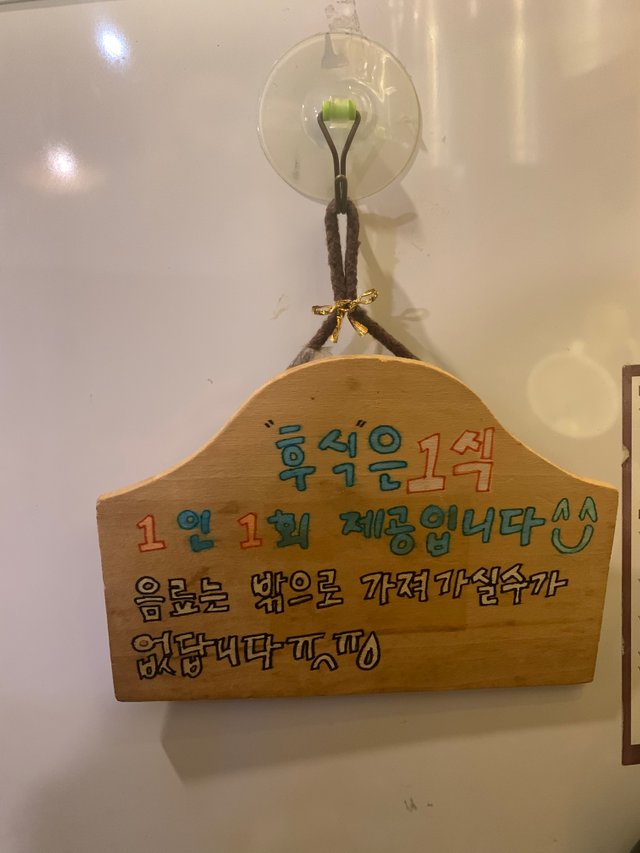 "후식"은 1식
1인 1회 제공입니다 ^^
음료는 밖으로 가져가실수가
없답니다 ㅠㅠ